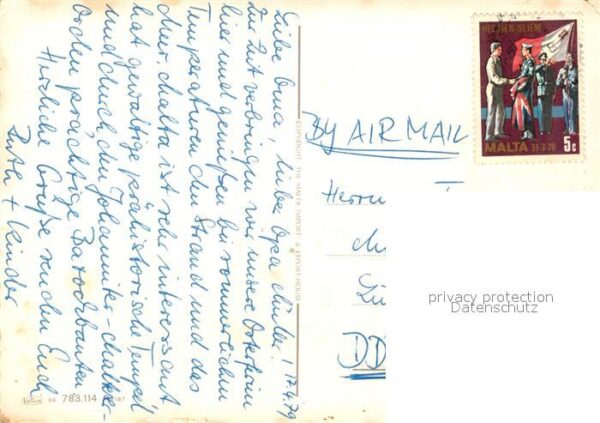 17.4.79
Liebe Oma, liebe Opa
Zur Zeit verbringen wir unsere Osterferien
hier und genießen bei sommerlichen
Temperaturen den Strand und das
Meer. Malta ist sehr interessant
hat gewaltige prähistorische Tempel
und durch den Johanniter-Malteser-
orden prächtige Barockbauten
Herzliche Grüße senden Euch
Ruth + Kinder
COPYRIGHT THE MALTA IMPORT & EXPORT-HOUSE
Krüger 783.114
HELSIEN·SLIEM
MALTA 31-3-79 5c
BY AIR MAIL
Herrn
DD
privacy protection
Datenschutz